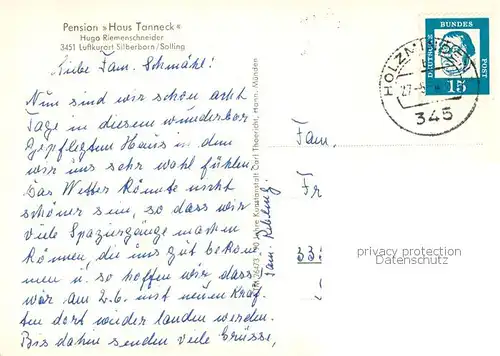 Pension »Haus Tanneck«
Hugo Riemenschneider
3451 Luftkurort Silberborn/Solling
Liebe Fam. Schmähl!
Nun sind wir schon acht
Tage in diesem wunderbar
gepflegten Haus in dem
wir uns sehr wohl fühlen.
Das Wetter könnte nicht
schöner sein, so dass wir
viele Spaziergänge machen
können, die uns gut bekom
men u. so hoffen wir dass
wir am 2.6. mit neuen Kräf
ten dort wieder landen werden.
Bis dahin senden viele Grüsse,
Jahre Kunstanstalt Carl Thoericht, Hann. Münden
Fam.
DEUTSCHE BUNDES POST
15
HOLZMINDEN
27.-5.
345
Fam.
Fr
33
privacy protection
Datenschutz